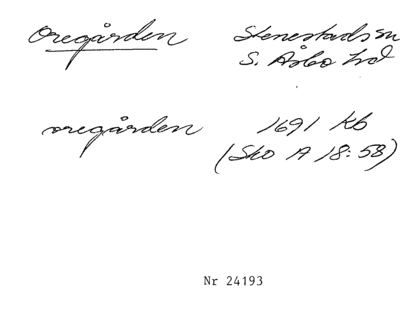 Oregården Stenestads sn
S. Åsbo hd
oregården 1691 Kb
(Sko A 18:58)
Nr 24193